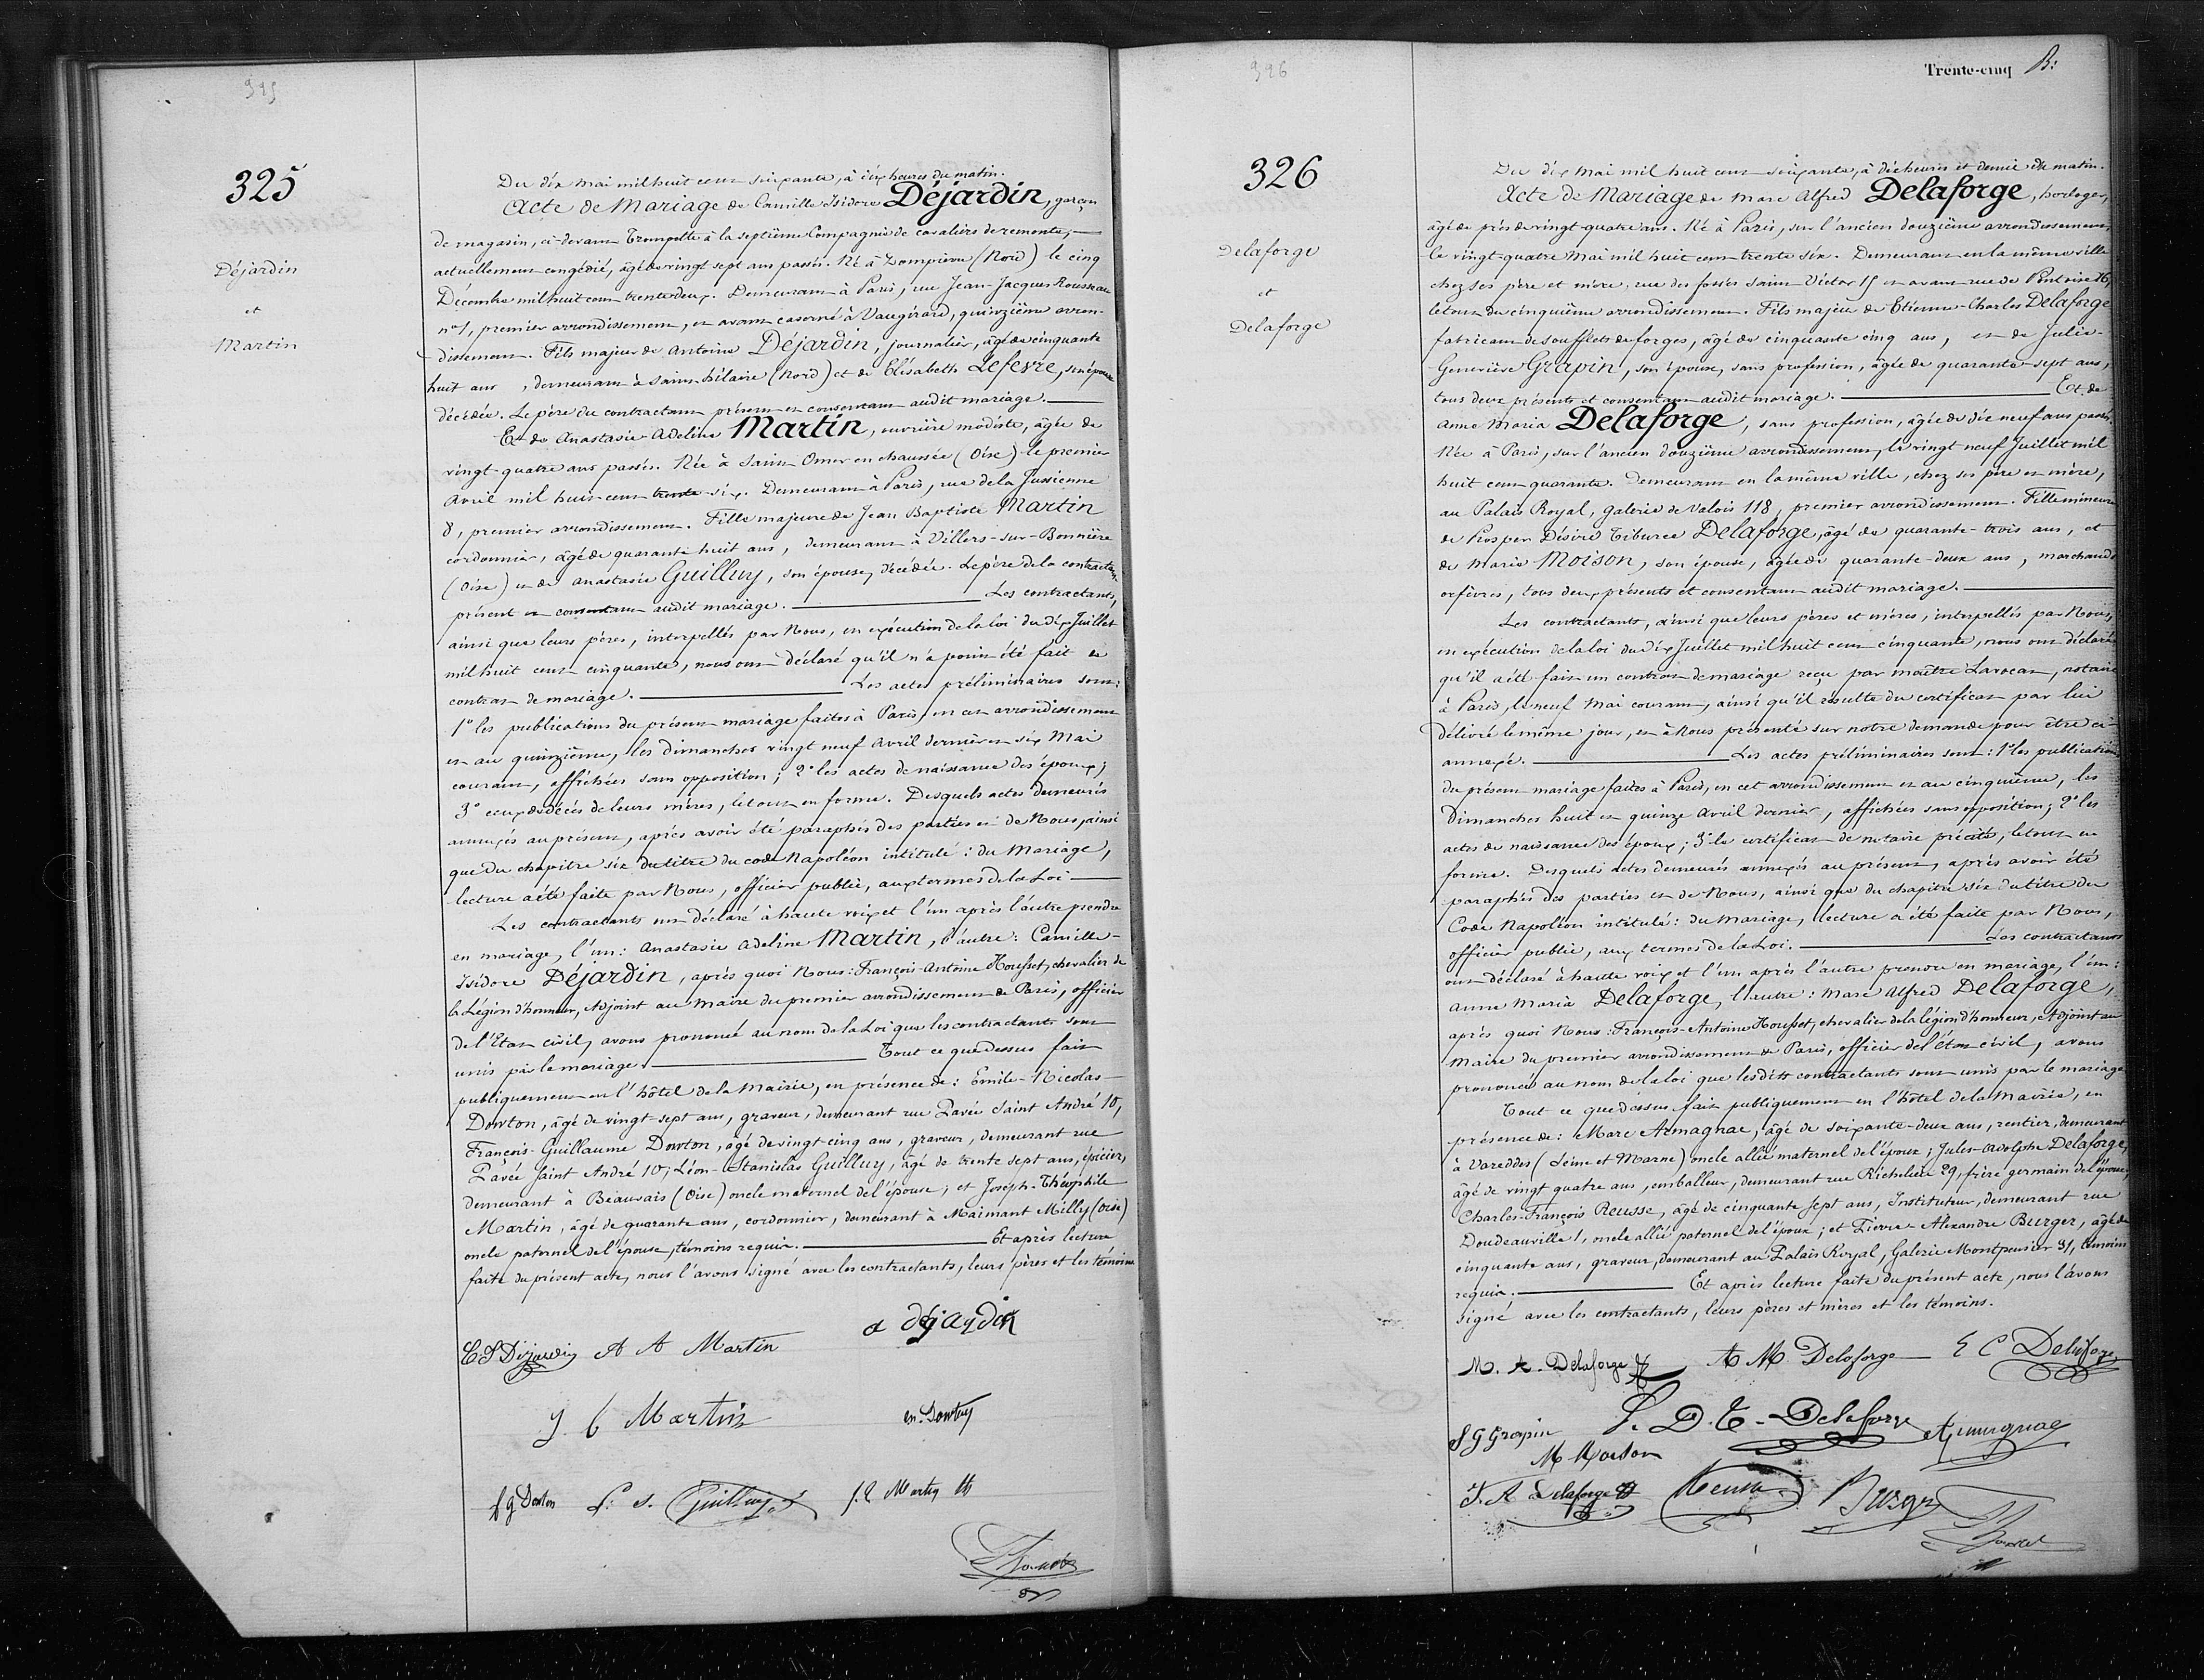 325
Déjardin
et
Martin
Du dix mai mil huit cent soixante, à dix heures du matin.
Acte de Mariage de Camille Isidore Déjardin, garçon
de magasin, ci-devant Trompette à la septième Compagnie de cavaliers de remonte,
actuellement congédié, âgé de vingt sept ans passés. Né à Dompierre (Nord) le cinq
Décembre mil huit cent trente deux. Demeurant à Paris, rue Jean-Jacques Rousseau
n° 1, premier arrondissement, et avant caserné à Vaugirard, quinzième arron-
dissement. Fils majeur de Antoine Déjardin, journalier, âgé de cinquante
huit ans, demeurant à Saint-hilaire (Nord) et de Elisabeth Lefevre, son épouse
décédée. Le père du contractant présent et consentant audit mariage.
Et de Anastasie Adeline Martin, ouvrière modiste, âgée de
vingt-quatre ans passés. Née à Saint Omer en chaussée (Oise) le premier
avril mil huit cent trente-six. Demeurant à Paris, rue de la Jussienne
8, premier arrondissement. Fille majeure de Jean Baptiste Martin
cordonnier, âgé de quarante huit ans, demeurant à Villers-sur-Bonnière
(Oise) et de Anastasie Guilluy, son épouse, décédée. Le père de la contractante
présent et consentant audit mariage. Les contractants,
ainsi que leurs pères, interpellés par Nous, en exécution de la loi du dix Juillet
mil huit cent cinquante, nous ont déclaré qu'il n'a point été fait de
contrat de mariage. Les actes préliminaires sont:
1° les publications du présent mariage faites à Paris, en cet arrondissement
et au quinzième, les dimanches vingt neuf avril dernier et six Mai
courant, affichées sans opposition; 2° les actes de naissance des époux;
3° ceux de décès de leurs mères, le tout en forme. Desquels actes demeurés
annexés au présent, après avoir été paraphés des parties et de Nous, ainsi
que du chapitre six du titre du code Napoléon intitulé: du Mariage,
lecture a été faite par Nous, officier public, aux termes de la Loi
Les contractants ont déclaré à haute voix et l'un après l'autre prendre
en mariage, l'un: Anastasie Adeline Martin, l'autre: Camille-
Isidore Déjardin, après quoi Nous: François-Antoine Housset, chevalier de
la Légion d'honneur, Adjoint au Maire du premier arrondissement de Paris, officier
de l'Etat civil, avons prononcé au nom de la Loi que les contractants sont
unis par le mariage. Tout ce que dessus fait
publiquement en l'hôtel de la Mairie, en présence de: Emile-Nicolas
Dowton, âgé de vingt-sept ans, graveur, demeurant rue Pavée Saint André 10,
François-Guillaume Dowton, âgé de vingt-cinq ans, graveur, demeurant rue
Pavée saint André 10; Léon-Stanislas Guilluy, âgé de trente sept ans, épicier,
demeurant à Beauvais (Oise) oncle maternel de l'épouse; et Joseph-Théophile
Martin, âgé de quarante ans, cordonnier, demeurant à Maimant Milly (oise)
oncle paternel de l'épouse, témoins requis. Et après lecture
faite du présent acte, nous l'avons signé avec les contractants, leurs pères et les témoins
C I Dejardin A A Martin a déjardin
J. b Martin en. Dowton
f g Dowton L. S. Guilluy J. T Martin th
Housset
326
Trente-cinq
Delaforge
et
Delaforge
Du dix mai mil huit cent soixante, à dix heures et demie du matin.
Acte de Mariage de Marc Alfred Delaforge, horloger,
âgé de près de vingt-quatre ans. Né à Paris, sur l'ancien douzième arrondissement,
le vingt-quatre Mai mil huit cent trente six. Demeurant en la même ville
chez ses père et mère, rue des fossés Saint-Victor 15 et avant rue de Pontoise 16,
le tout du cinquième arrondissement. Fils majeur de Etienne-Charles Delaforge
fabricant de soufflets de forges, âgé de cinquante cinq ans, et de Julie-
Geneviève Grapin, son épouse, sans profession, âgée de quarante-sept ans,
tous deux présents et consentant audit mariage. Et de
Anne Maria Delaforge, sans profession, âgée de dix neuf ans passés.
Née à Paris, sur l'ancien douzième arrondissement, le vingt neuf Juillet mil
huit cent quarante. Demeurant en la même ville, chez ses père et mère,
au Palais Royal, galerie de Valois 118, premier arrondissement. Fille mineure
de Prosper Désiré Tiburce Delaforge, âgé de quarante-trois ans, et
de Marie Moison, son épouse, âgée de quarante-deux ans, marchands
orfèvres, tous deux présents et consentant audit mariage.
Les contractants, ainsi que leurs pères et mères, interpellés par Nous,
en exécution de la loi du dix Juillet mil huit cent cinquante, nous ont déclaré
qu'il a été fait un contrat de mariage reçu par maître Lavocat, notaire
à Paris, le neuf Mai courant, ainsi qu'il résulte du certificat par lui
délivré le même jour, et à Nous présenté sur notre demande pour être ci-
annexé. Les actes préliminaires sont: 1° les publications
du présent mariage faites à Paris, en cet arrondissement et au cinquième, les
Dimanches huit et quinze avril dernier, affichées sans opposition; 2° les
actes de naissance des époux; 3° le certificat de notaire précité, le tout en
forme. Desquels actes demeurés annexés au présent, après avoir été
paraphés des parties et de Nous, ainsi que du chapitre six du titre du
Code Napoléon intitulé: du Mariage, lecture a été faite par Nous,
officier public, aux termes de la Loi. Les contractants
ont déclaré à haute voix et l'un après l'autre prendre en mariage, l'un:
Anne Maria Delaforge, l'autre: Marc Alfred Delaforge,
après quoi Nous: François-Antoine Housset, chevalier de la légion d'honneur, Adjoint au
Maire du premier arrondissement de Paris, officier de l'état civil, avons
prononcé au nom de la loi que lesdits contractants sont unis par le mariage
Tout ce que dessus fait publiquement en l'hôtel de la Mairie, en
présence de: Marc Armagnac, âgé de soixante-deux ans, rentier, demeurant
à Vareddes (Seine et Marne) oncle allié maternel de l'époux; Jules-Adolphe Delaforge,
âgé de vingt quatre ans, emballeur, demeurant rue Richelieu 29, frère germain de l'époux;
Charles-François Reusse, âgé de cinquante sept ans, Instituteur, demeurant rue
Doudeauville 1, oncle allié paternel de l'époux; et Pierre-Alexandre Burger, âgé de
cinquante ans, graveur, demeurant au Palais Royal, Galerie Montpensier 31, témoins
requis. Et après lecture faite du présent acte, nous l'avons
signé avec les contractants, leurs pères et mères et les témoins.
M. A. Delaforge A M Delaforge E C Delaforge
J G Grapin P. D. T. Delaforge Armagnac
M Moison
J. A Delaforge Reusse Burger
Housset